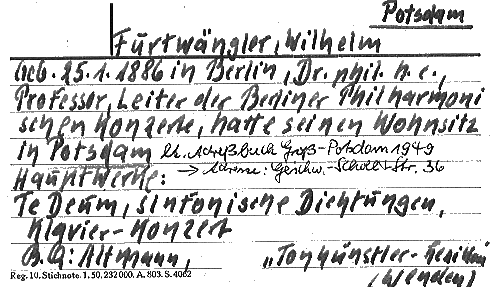 Potsdam
Furtwängler, Wilhelm
Geb. 25.1.1886 in Berlin, Dr. phil. h.c.,
Professor, Leiter der Berliner Philharmoni
schen Konzerte, hatte seinen Wohnsitz
in Potsdam lt. Adreßbuch Groß-Potsdam 1949
→ Adresse: Geschw.-Scholl-Str. 36
Hauptwerke:
Te Deum, sinfonische Dichtungen,
Klavier-Konzert
B.Q: Altmann, „Tonkünstler-Lexikon
(Wenden)
Reg. 10. Stichnote. 1. 50. 232000. A. 803. S. 4062